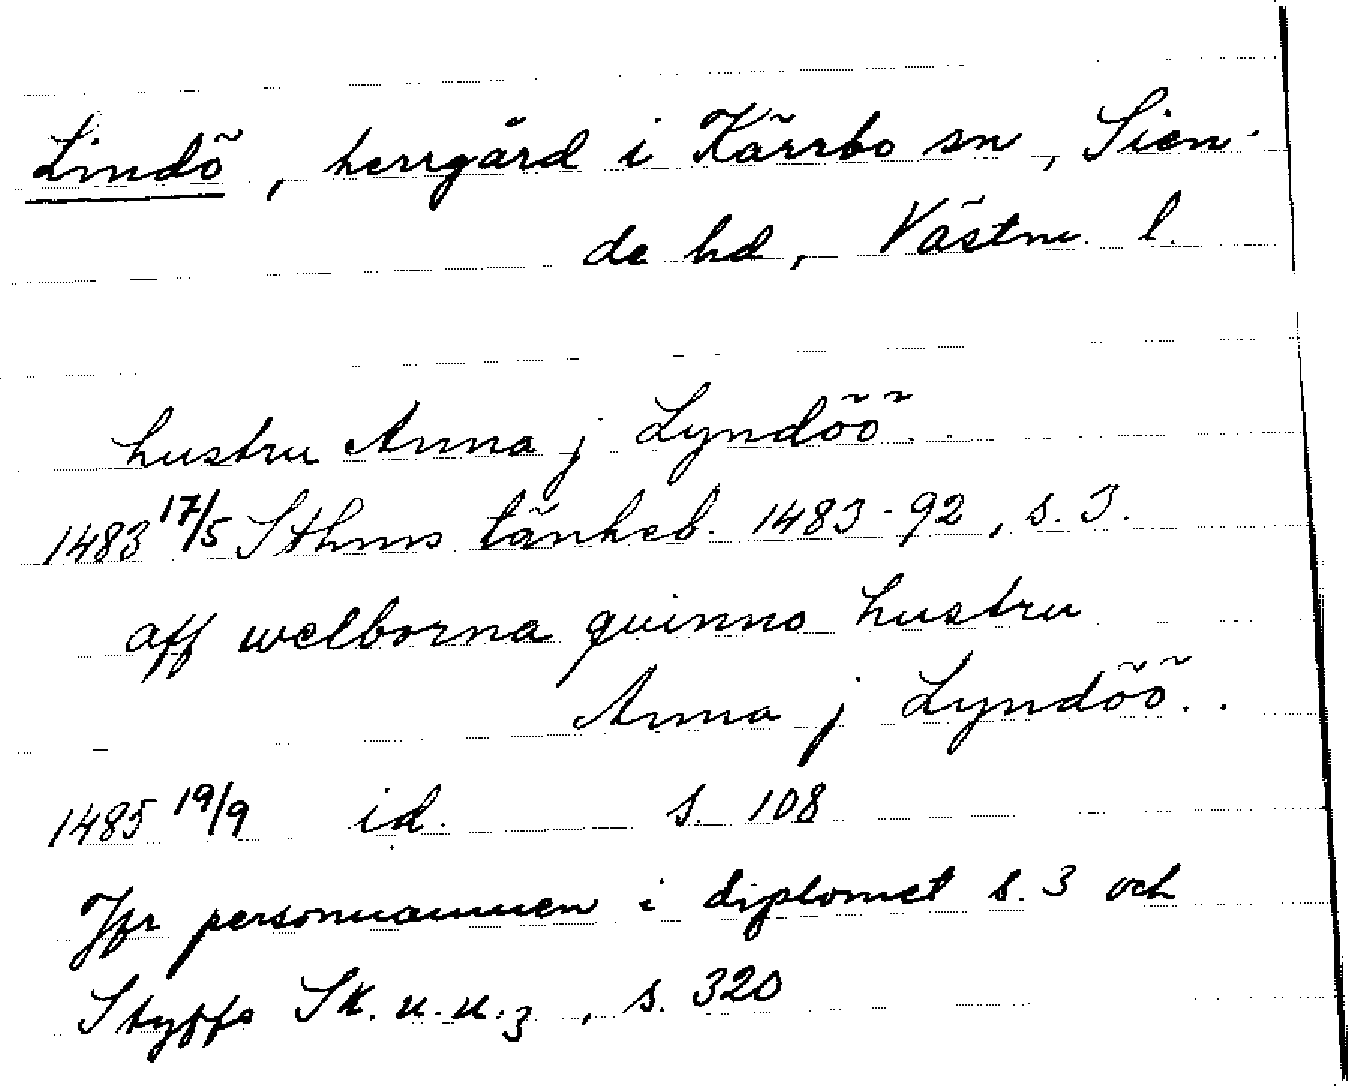 Lindö, herrgård i Kärrbo sn, Sien-
de hd, Västm. l.
hustru Anna j Lyndöö..
1483 17/5 Sthms tänkeb. 1483-92, s. 3.
aff welborna quinno hustru
Anna j Lyndöö..
1485 19/9 id. s 108
Jfr personnamnen i diplomet s. 3 och
Styffe Sk. u. u.3, s. 320